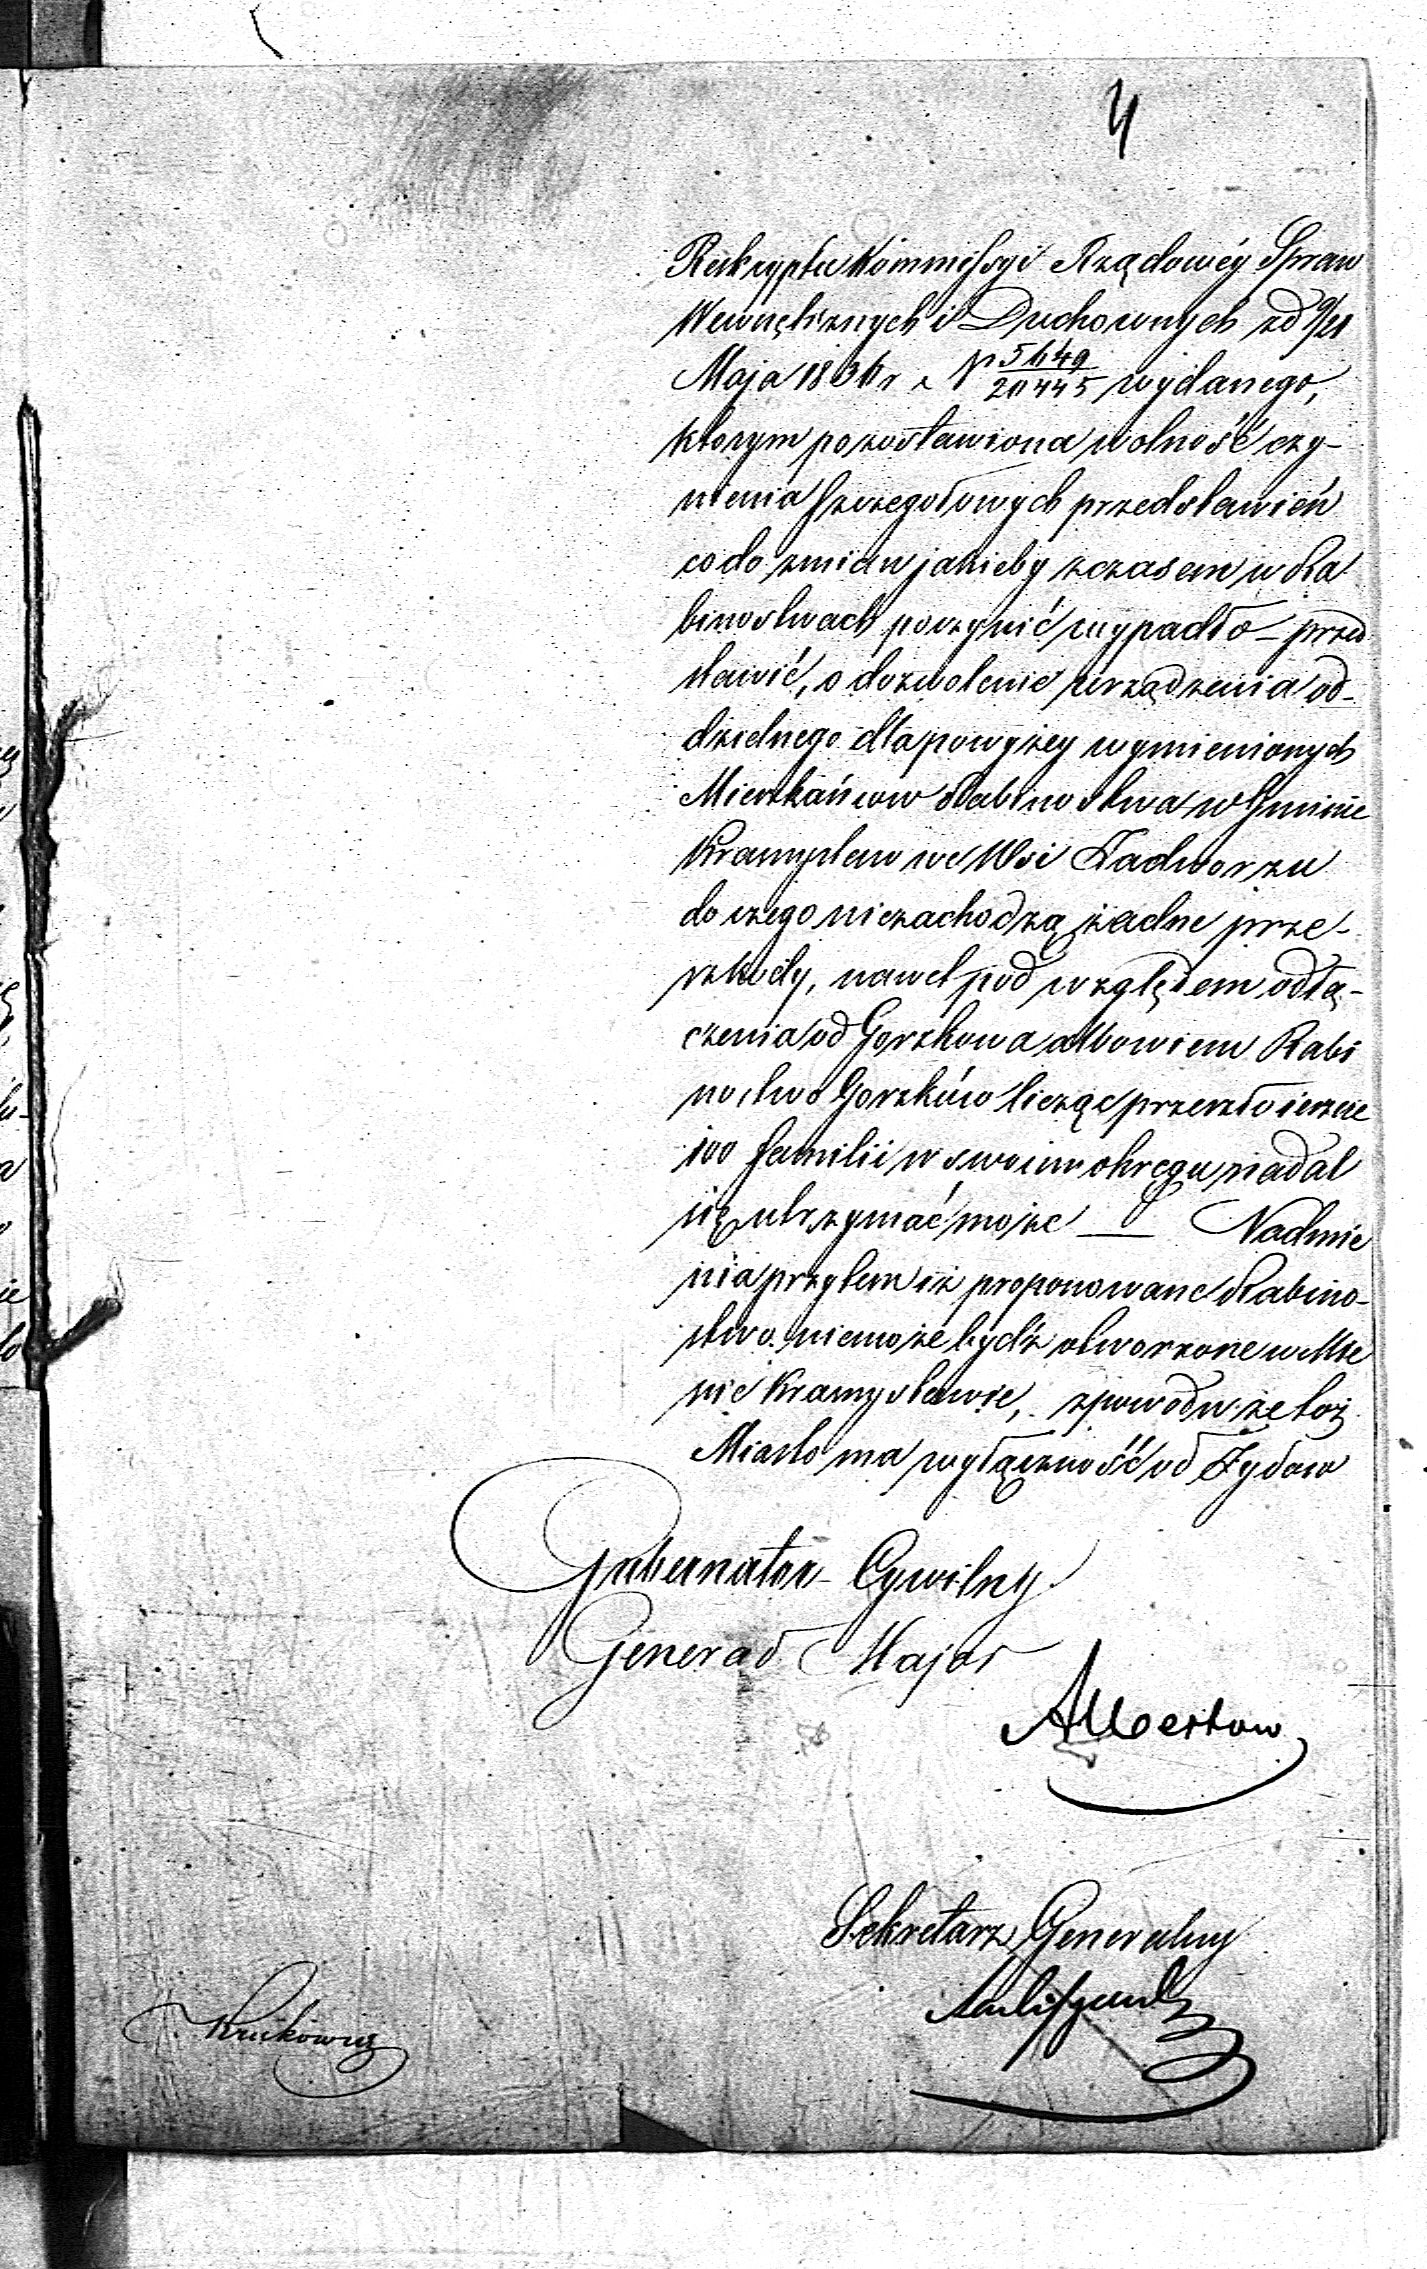 4
Reskryptu Kommissyi Rządowéy Spraw
Wewnętrznych i Duchownych z d 9/21
Maja 1836 r N 5649/20445 wydanego,
ktorym pozostawiona wolność czy-
nienia szczegołowych przedstawień
co do zmian jakieby z czasem w Ra
binostwach poczynić wypadło – przed
stawić, o dozwolenie urządzenia od-
dzielnego dla powyżey wymienionych
Mieszkańcow Rabinostwa w Gminie
Krasnystaw we Wsi Zadworzu
do czego niezachodzą żadne prze-
szkody, nawet pod względem odłą-
czenia od Gorzkowa albowiem Rabi
nostwo Gorzków licząc przeszło jeszcze
100 familii w swoim okręgu nadal
się utrzymać może — Nadmie
nia przytem iż proponowane Rabino-
stwo niemoże bydź otworzone w Mie
ście Krasnystawie, z powodu że toż
Miasto ma wyłączność od Żydow
Gubernator Cywilny
Generał Major
Albertow
Sekretarz Generalny